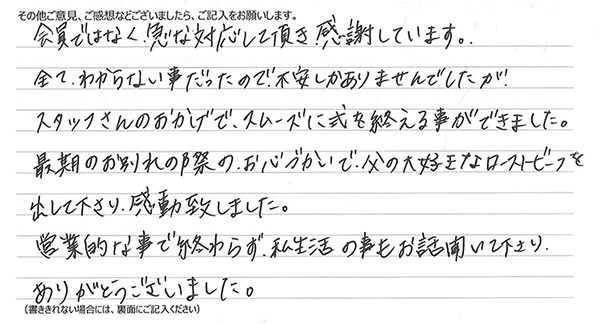 その他ご意見、ご感想などございましたら、ご記入をお願いします。
会員ではなく、急な対応して頂き感謝しています。
全て、わからない事だったので、不安しかありませんでしたが、
スタッフさんのおかげで、スムーズに式を終える事ができました。
最期のお別れの際の、お心づかいで、父の大好きなローストビーフを
出して下さり、感動致しました。
営業的な事で終わらず、私生活の事もお話聞いて下さり、
ありがとうございました。
（書ききれない場合には、裏面にご記入ください）